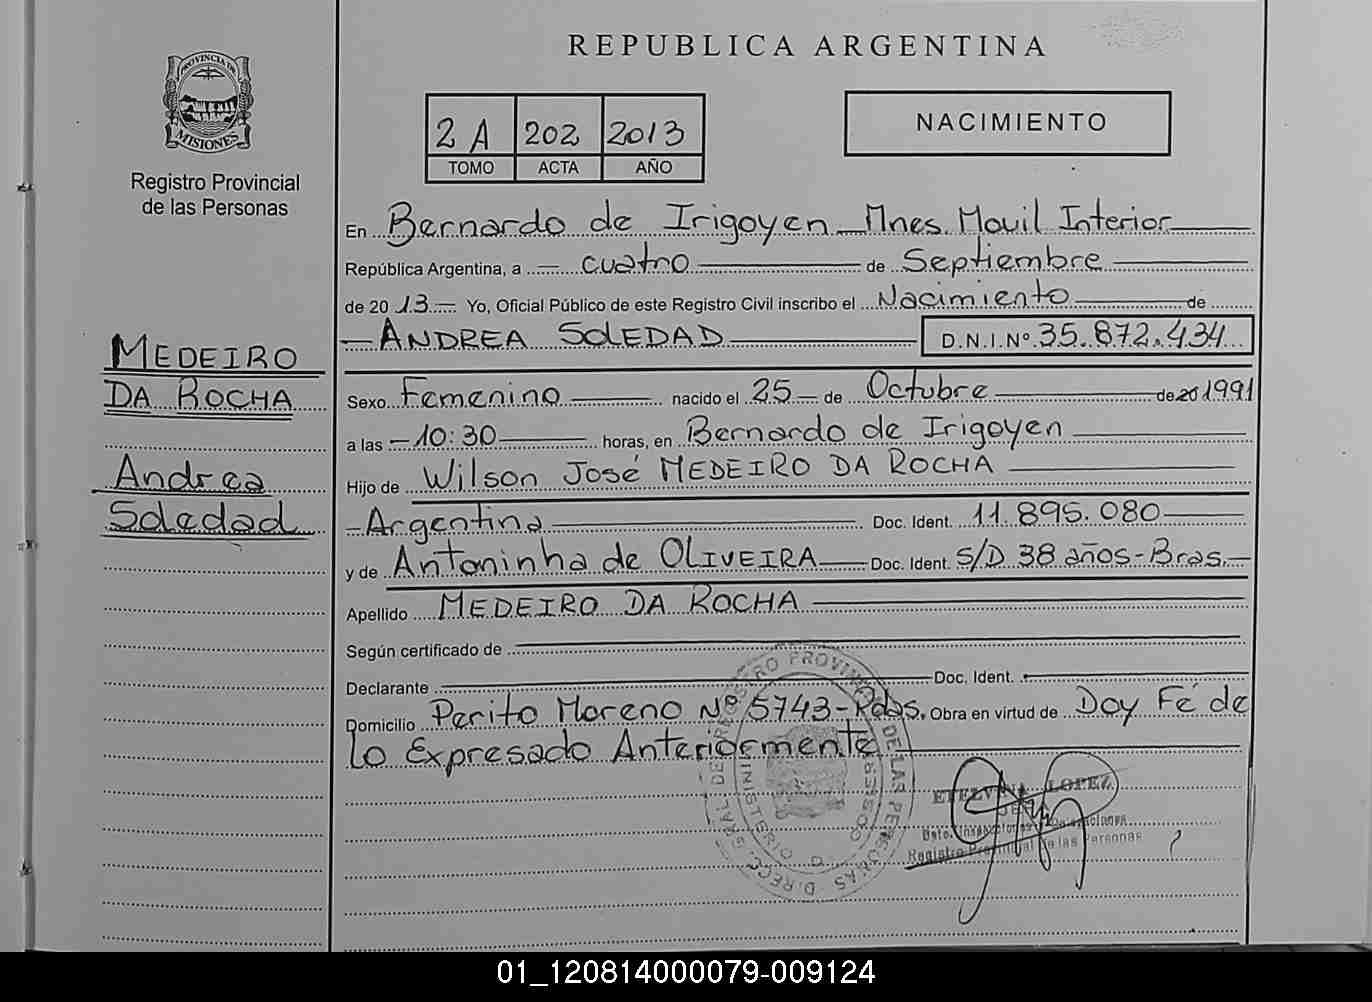 REPUBLICA ARGENTINA
PROVINCIA DE
MISIONES
Registro Provincial
de las Personas
2 A 202 2013
TOMO ACTA AÑO
NACIMIENTO
En Bernardo de Irigoyen Mnes. Movil Interior
República Argentina, a cuatro de Septiembre
de 2013 Yo, Oficial Público de este Registro Civil inscribo el Nacimiento de
ANDREA SOLEDAD D.N.I.Nº 35.872.434
MEDEIRO
DA ROCHA
Andrea
Soledad
Sexo Femenino nacido el 25 de Octubre de 20 1991
a las 10:30 horas, en Bernardo de Irigoyen
Hijo de Wilson José MEDEIRO DA ROCHA
Argentina Doc. Ident. 11.895.080
y de Antoninha de OLIVEIRA Doc. Ident. S/D 38 años-Bras.
Apellido MEDEIRO DA ROCHA
Según certificado de
Declarante Doc. Ident.
Domicilio Perito Moreno Nº 5743-Pdas. Obra en virtud de Doy Fé de
lo Expresado Anteriormente
LOPEZ
Registro Provincial de las Personas
01_120814000079-009124